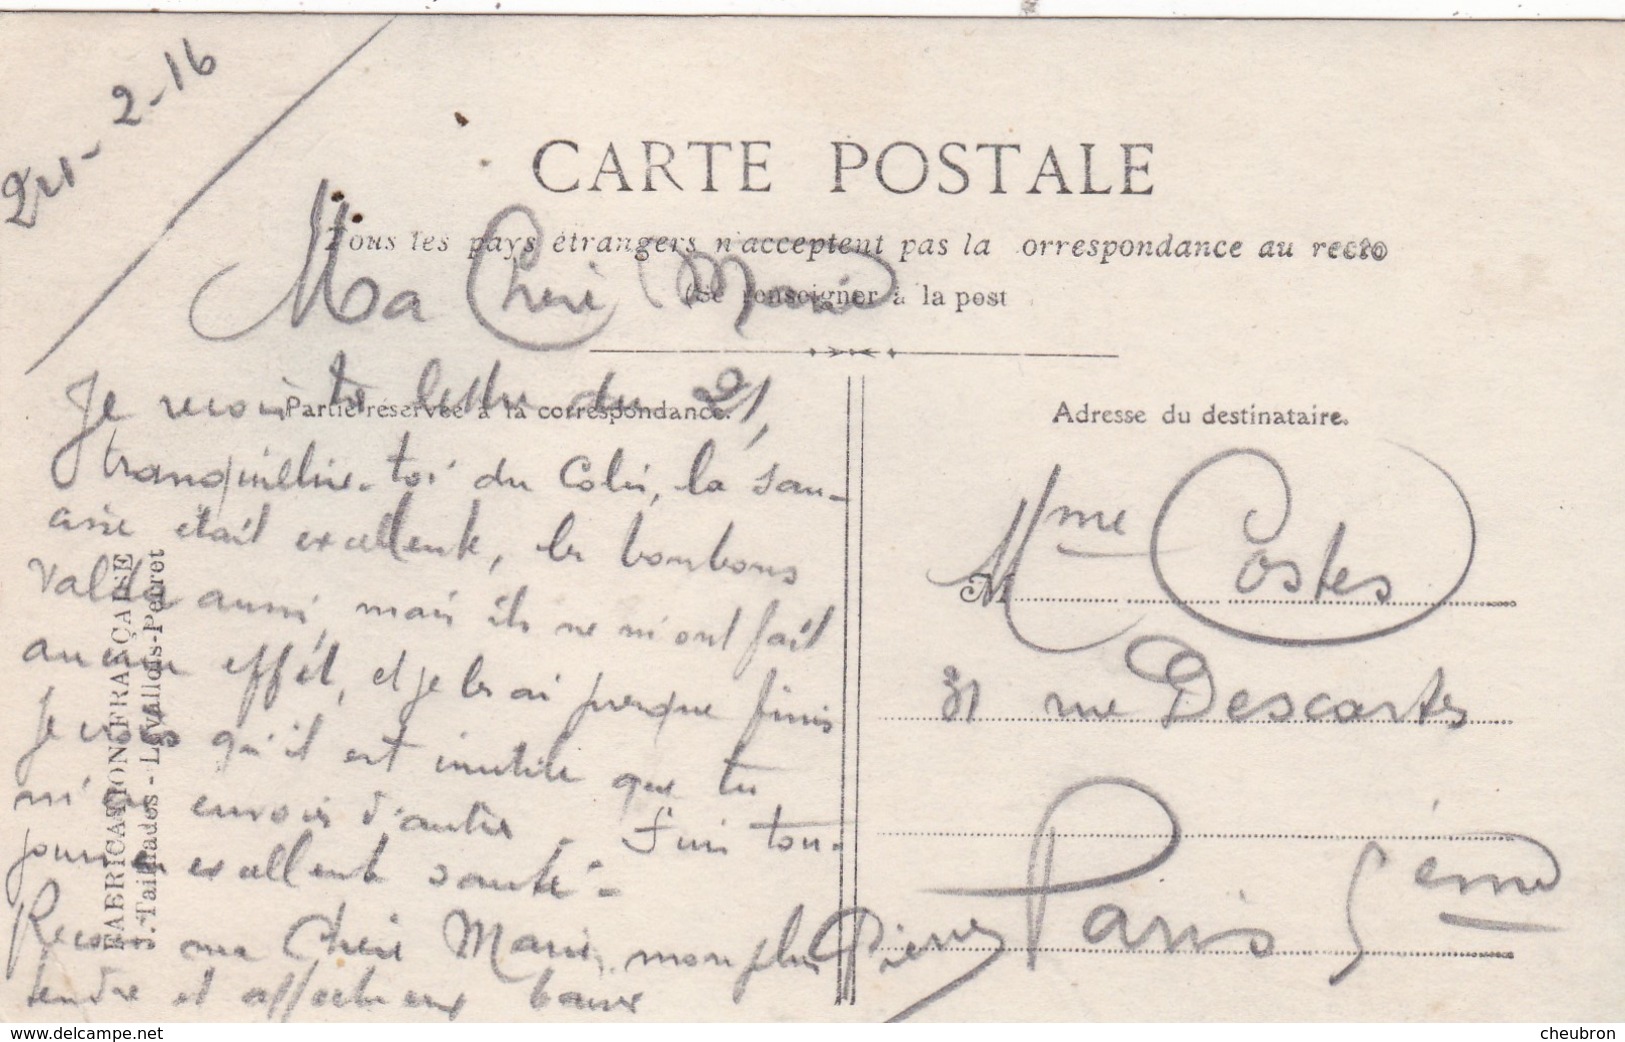 24-2-16
CARTE POSTALE
Tous les pays étrangers n'acceptent pas la orrespondance au recto
(Se renseigner à la post
Ma Chère Marie
Partie réservée à la correspondance.
Je reçois ta lettre du 21,
tranquillise-toi du Colis, la sau-
cisse était excellente, les bonbons
Valda aussi, mais ils ne m'ont fait
aucun effet, et je les ai presque finis
Je crois qu'il est inutile que tu
m'en envois d'autres - Suis tou-
jours en excellente santé -
Reçois ma Chère Marie, mon plus
tendre et affectueux baiser
Pierre
Adresse du destinataire.
M
Mme Costes
31 rue Descartes
Paris 5ème
FABRICATION FRANÇAISE
J. Tailhades - Levallois-Perret
www.delcampe.net
cheubron